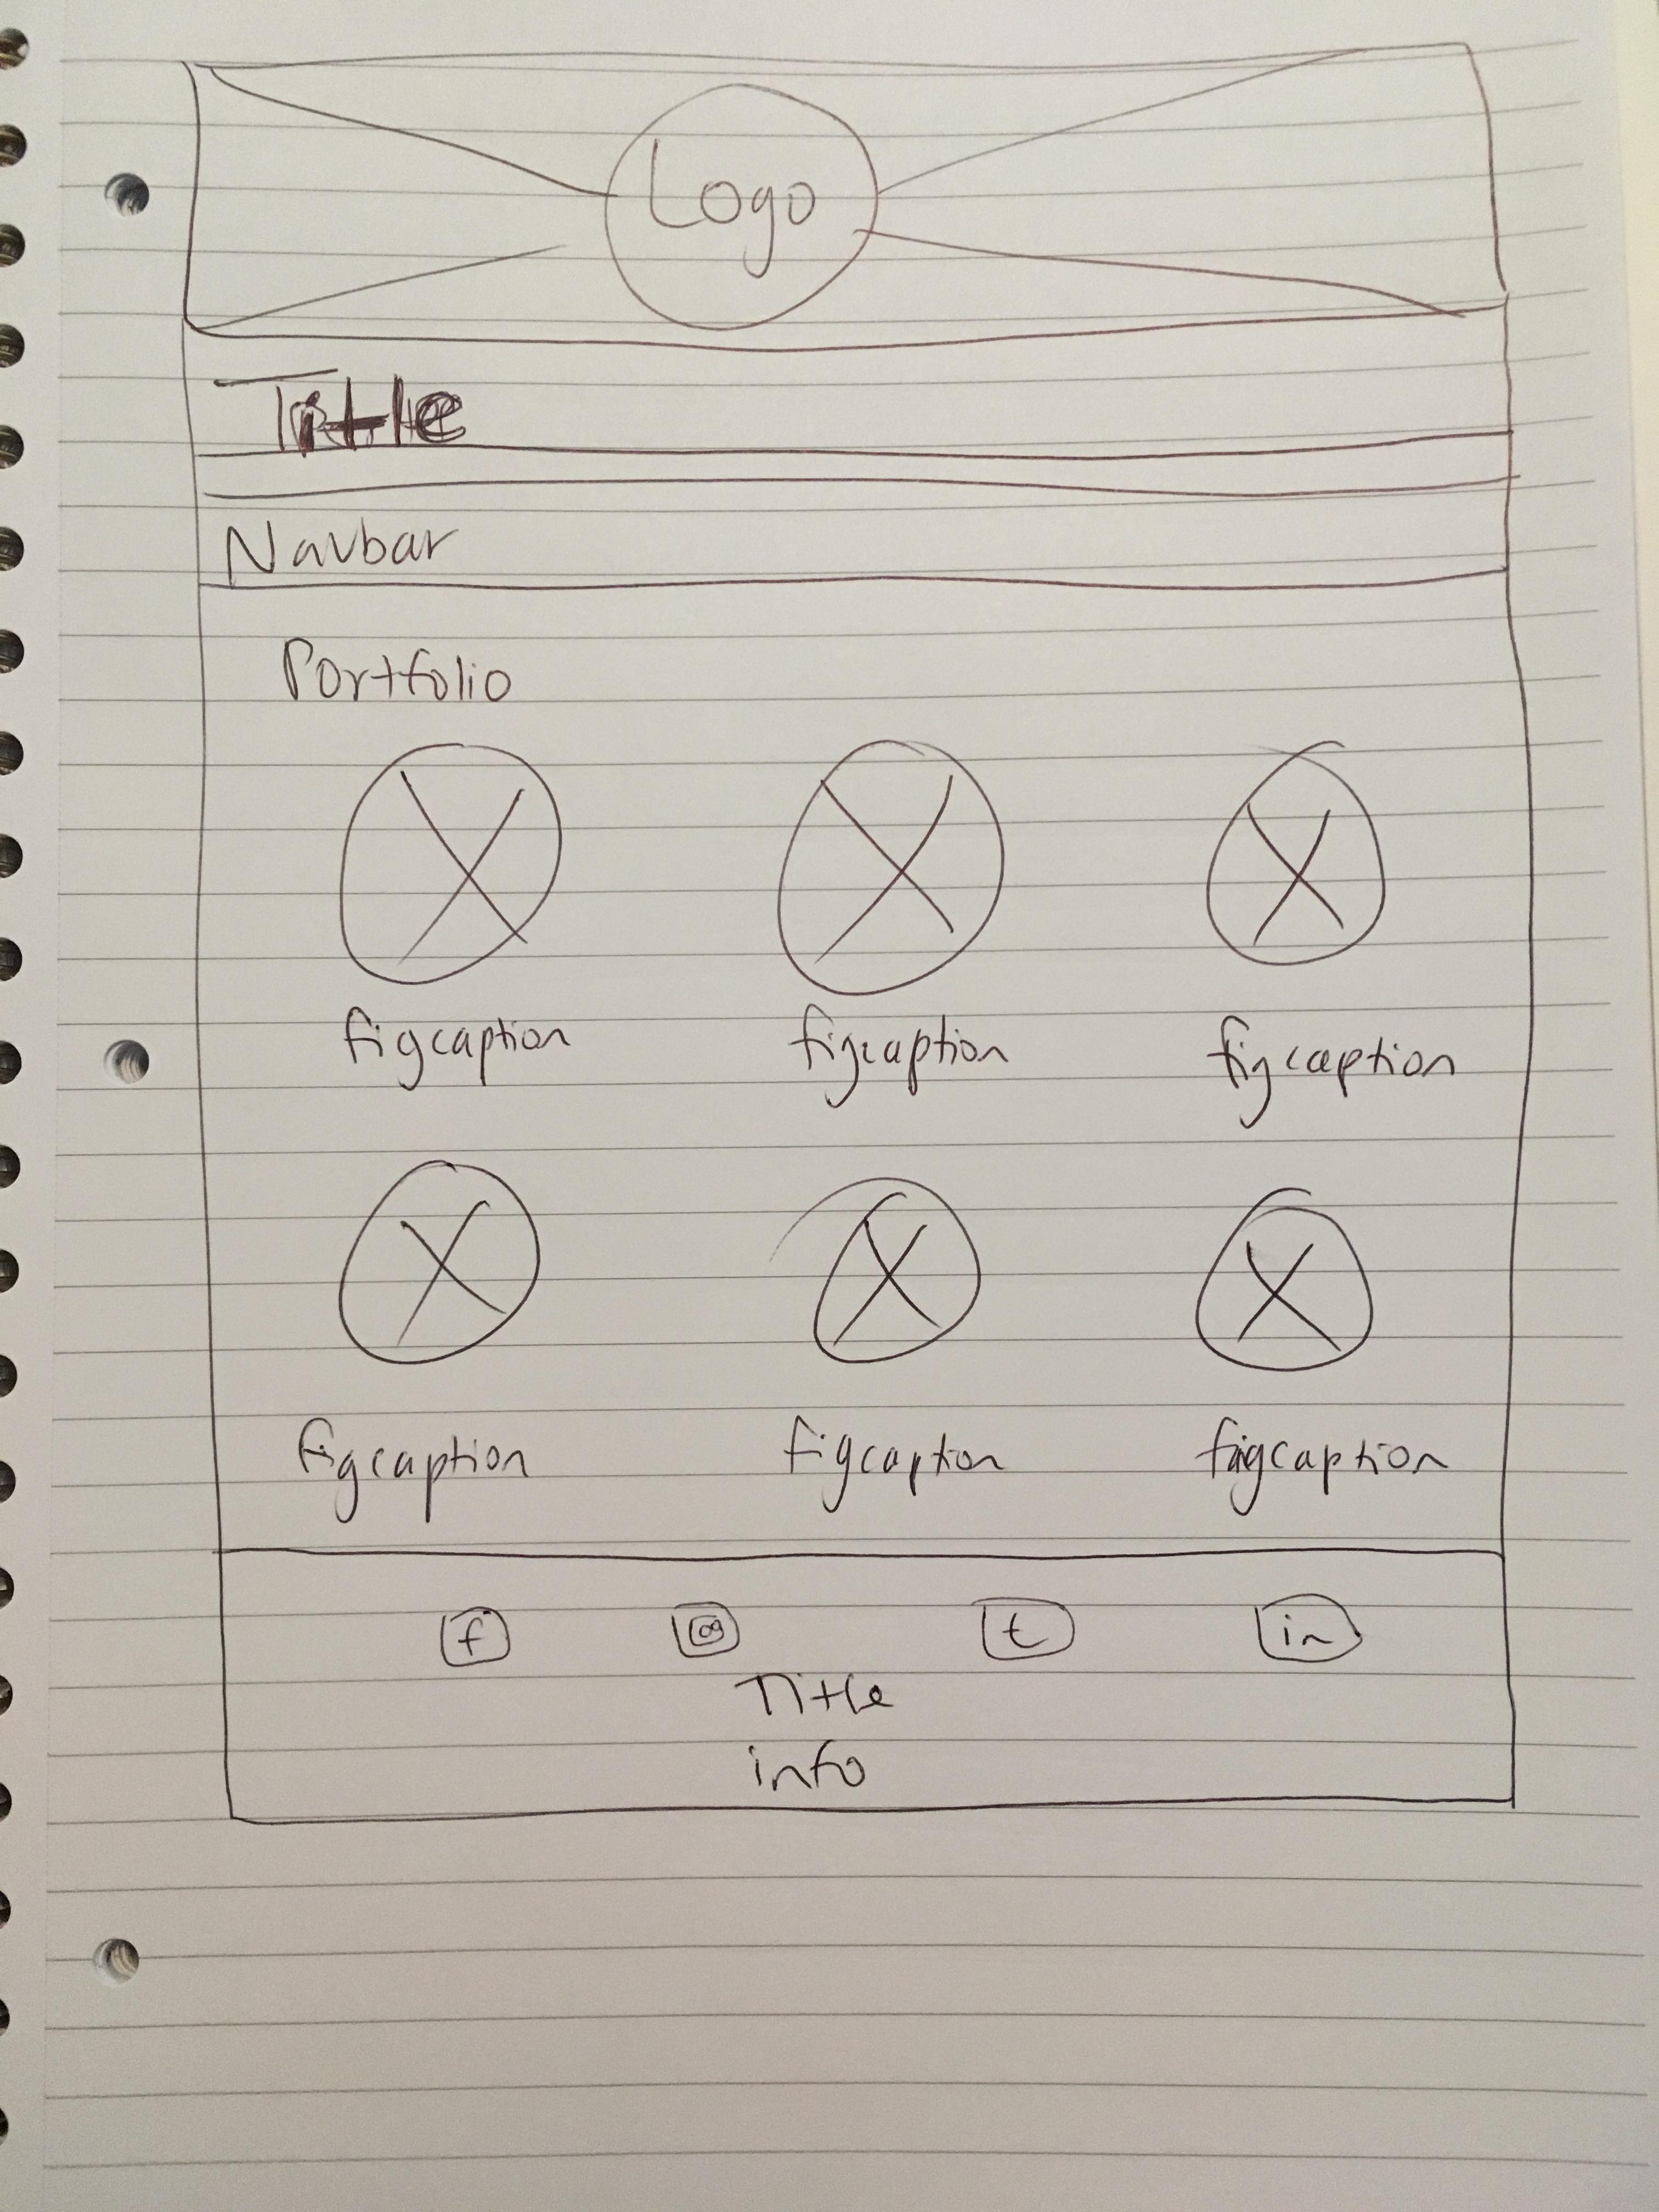 Logo
Title
Navbar
Portfolio
figcaption figcaption figcaption
figcaption figcaption figcaption
f t in
Title
info